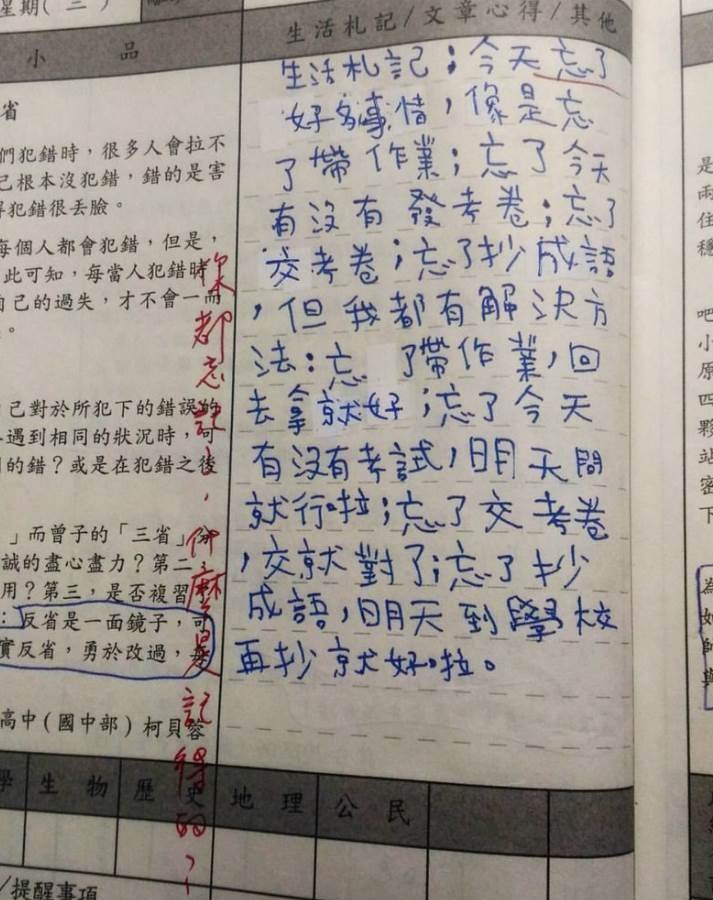 星期(三)
生活札記/文章心得/其他
小品
省
們犯錯時，很多人會拉不
己根本沒犯錯，錯的是害
得犯錯很丟臉。
每個人都會犯錯，但是，
此可知，每當人犯錯時，
自己的過失，才不會一而
。
己對於所犯下的錯誤的
遇到相同的狀況時，可
的錯？或是在犯錯之後
」而曾子的「三省」分
誠的盡心盡力？第二，
用？第三，是否複習
：反省是一面鏡子，可
實反省，勇於改過，是
高中(國中部)柯貝蓉
生活札記：今天忘了
好多事情，像是忘
了帶作業；忘了今天
有沒有發考卷；忘了
交考卷；忘了抄成語
，但我都有解決方
法：忘了帶作業，回
去拿就好；忘了今天
有沒有考試，明天問
就行啦；忘了交考卷
，交就對了；忘了抄
成語，明天到學校
再抄就好啦。
你都忘記了，什麼是記得的？
學 生物 歷史 地理 公民
/提醒事項
是
兩
住
穩
吧
小
原
四
夥
站
密
下
為
如
師
與